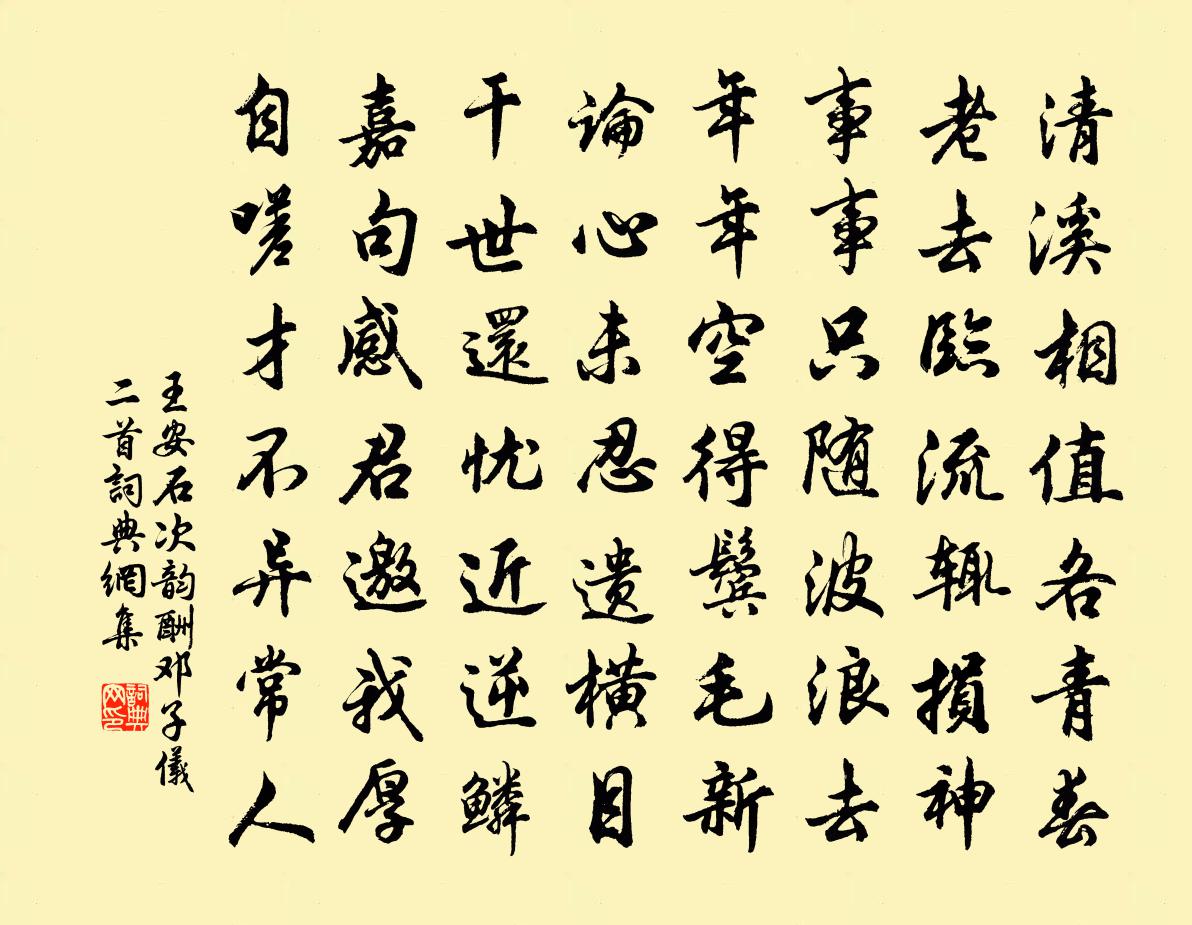 清溪相值各青春
老去臨流辄損神
事事只随波浪去
年年空得鬓毛新
論心未忍遗橫目
干世還忧近逆鱗
嘉句感君邀我厚
自嗟才不异常人
王安石次韵酬邓子儀
二首詞典網集
詞典
网印